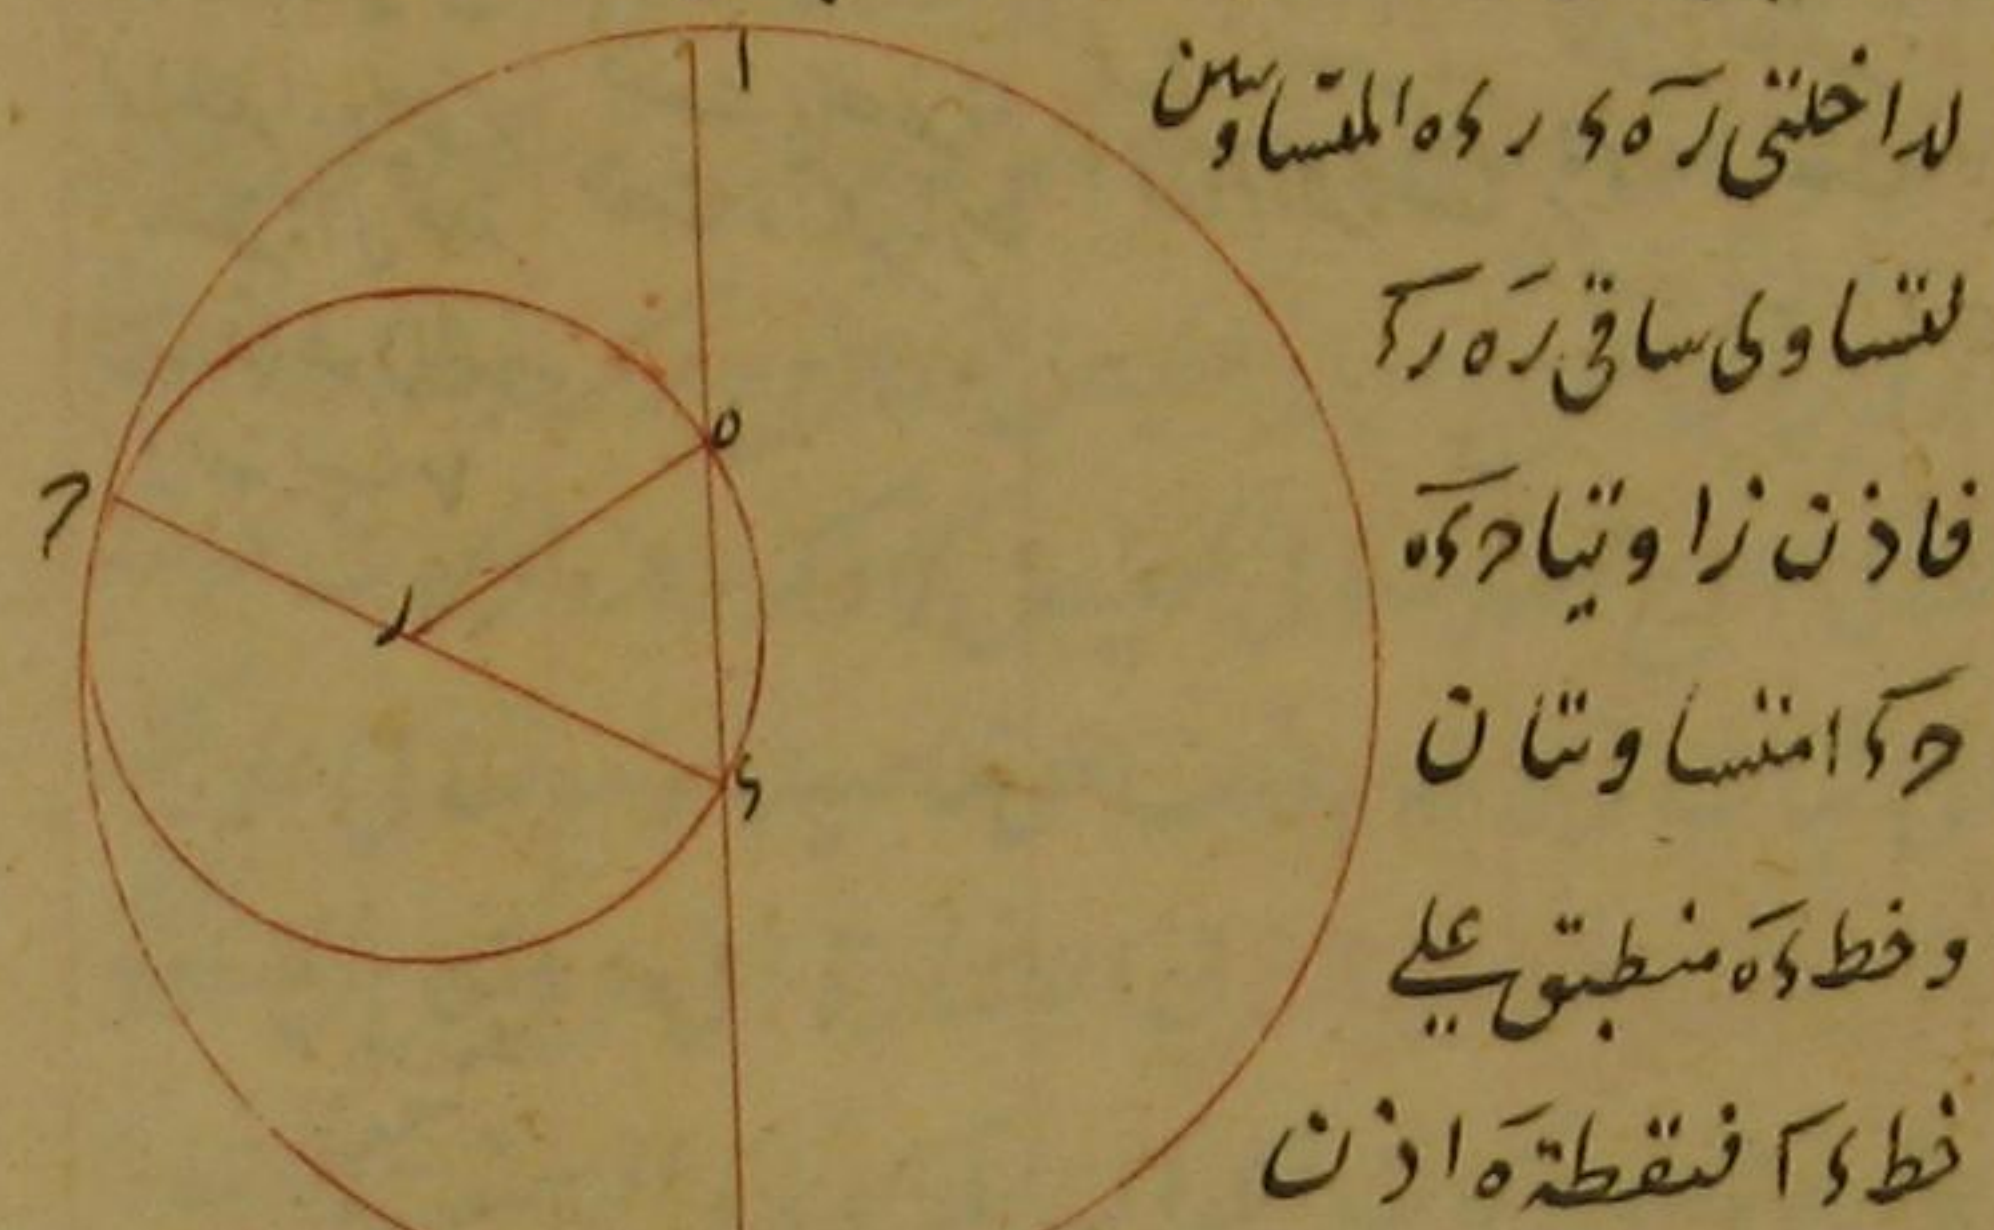 لداخلتي ره‍د رد‍ه المتساويين
لتساوى ساقى ره رد
فاذن زاويتا حده
حدا متساويتان
وخط ده منطبق على
خط دا فنقطة ه اذن
ا
ه
ح
ر
د